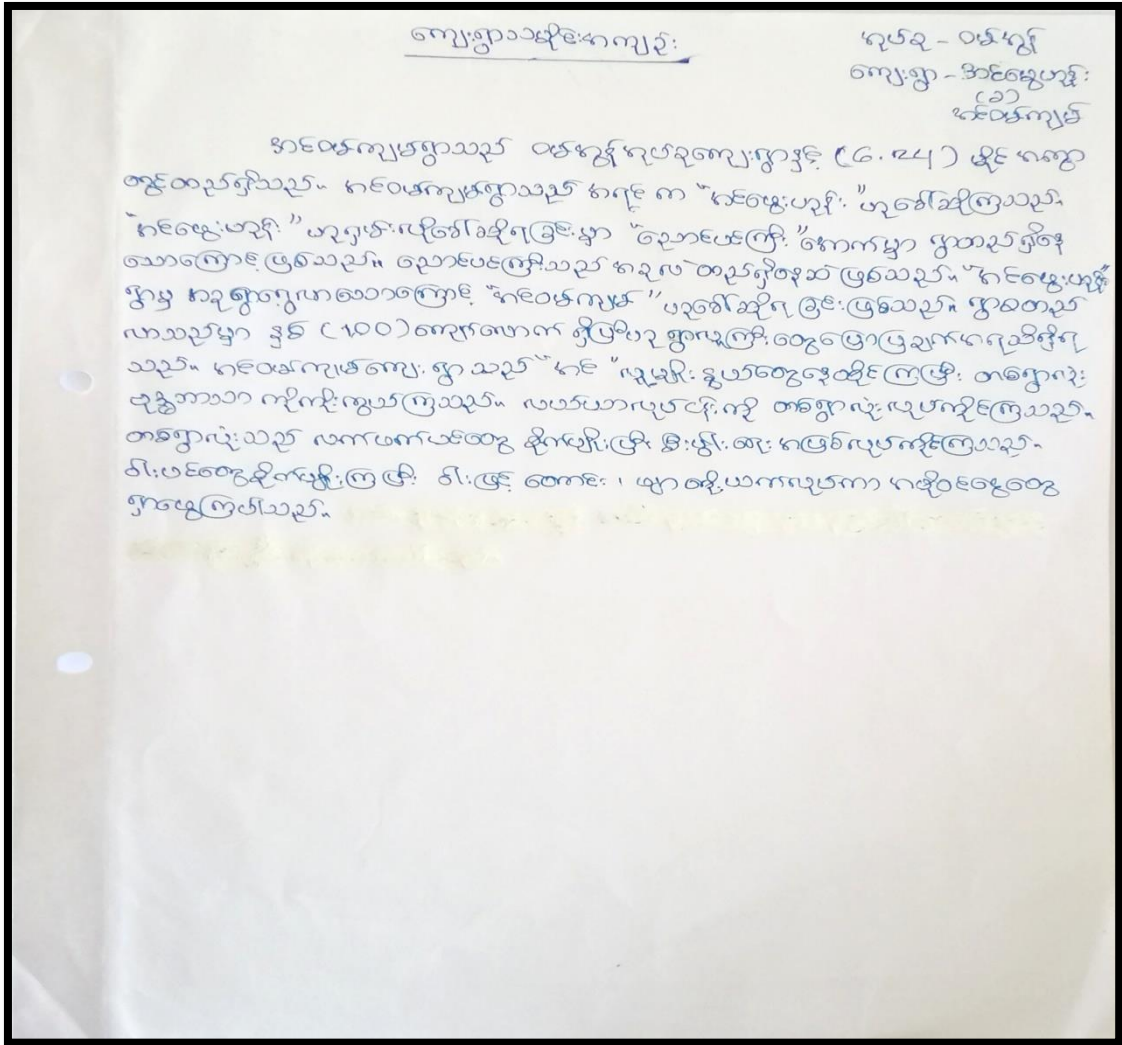 ကျေးရွာသမိုင်းအကျဉ်း
အုပ်စု - ဝမ်အွန်
ကျေးရွာ - အင်မွေဟုန်း
(ခ)
အင်ဝမ်ကျမ်
အင်ဝမ်ကျမ်ရွာသည် ဝမ်အွန်အုပ်စုကျေးရွာနှင့် (၆.၈၄) မိုင် အကွာ
တွင်တည်ရှိသည်။ အင်ဝမ်ကျမ်ရွာသည် အရင် က "အင်မွေးဟုန်း" ဟုခေါ်ဆိုကြသည်။
"အင်မွေးဟုန်း" ဟုရှမ်းလိုခေါ်ဆိုရခြင်းမှာ "ညောင်ပင်ကြီး" အောက်မှာ ရွာတည်ရှိနေ
သောကြောင့်ဖြစ်သည်။ ညောင်ပင်ကြီးသည် အခုလဲ တည်ရှိနေဆဲ ဖြစ်သည်။ "အင်မွေးဟုန်း"
ရွာမှ အခုရွာရွှေ့လာသောကြောင့် "အင်ဝမ်ကျမ်" ဟုခေါ်ဆိုရ ခြင်းဖြစ်သည်။ ရွာစတည်
လာသည်မှာ နှစ် (၁၀၀) ကျော်လောက် ရှိပြီဟု ရွာလူကြီးတွေပြောပြချက်အရသိရှိရ
သည်။ အင်ဝမ်ကျမ်ကျေးရွာ သည် "အင်" လူမျိုးနွယ်တွေနေထိုင်ကြပြီး တစ်ရွာလုံး
ဗုဒ္ဓဘာသာ ကိုးကွယ်ကြသည်။ လယ်ယာလုပ်ငန်းကို တစ်ရွာလုံးလုပ်ကိုင်ကြသည်။
တစ်ရွာလုံးသည် လက်ဖက်ပင်တွေ စိုက်ပျိုးပြီး စီးပွါးရေး အဖြစ်လုပ်ကိုင်ကြသည်။
ဝါးပင်တွေစိုက်ပျိုးကြပြီး ဝါးဖြင့် တောင်း၊ ဖျာ တို့ယက်လုပ်ကာ အပိုဝင်ငွေတွေ
ရှာဖွေကြပါသည်။